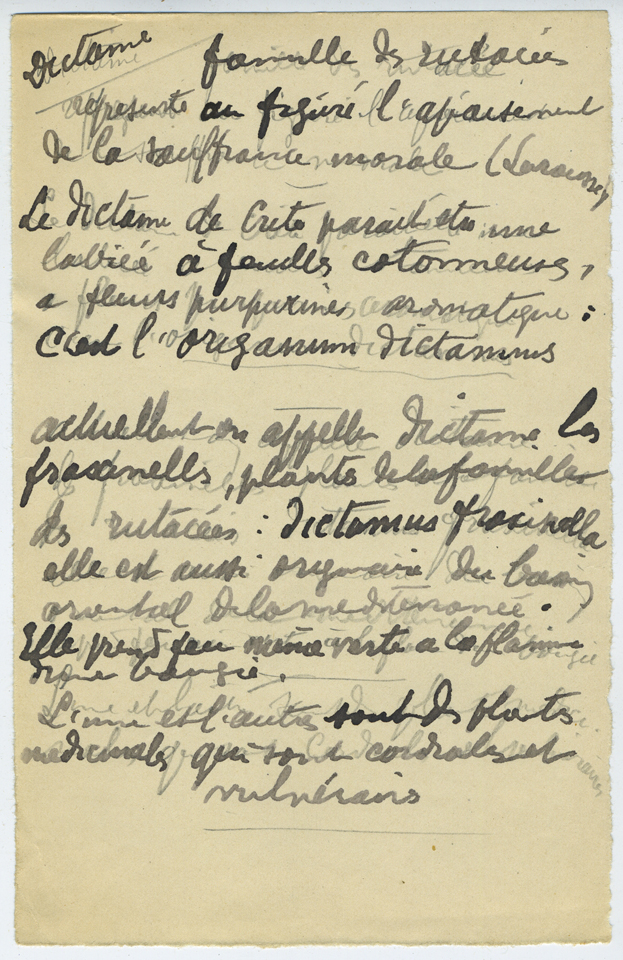 Dictame famille des rutacées
represente au figuré l'apaisement
de la souffrance morale (Larousse)
Le dictame de Crète parait etre une
labiée à feuilles cotonneuses,
a fleurs purpurines aromatique :
c'est l'origanum dictamnus
actuellement on appelle dictame les
fraxinelles, plantes de la famille
des rutacées : dictamus fraxinella
elle est aussi originaire du bassin
oriental de la mediterranée.
Elle prend feu même verte a la flamme
d'une bougie.
L'une et l'autre sont des plantes
medicinales qui sont cordiales et
vulnéraires